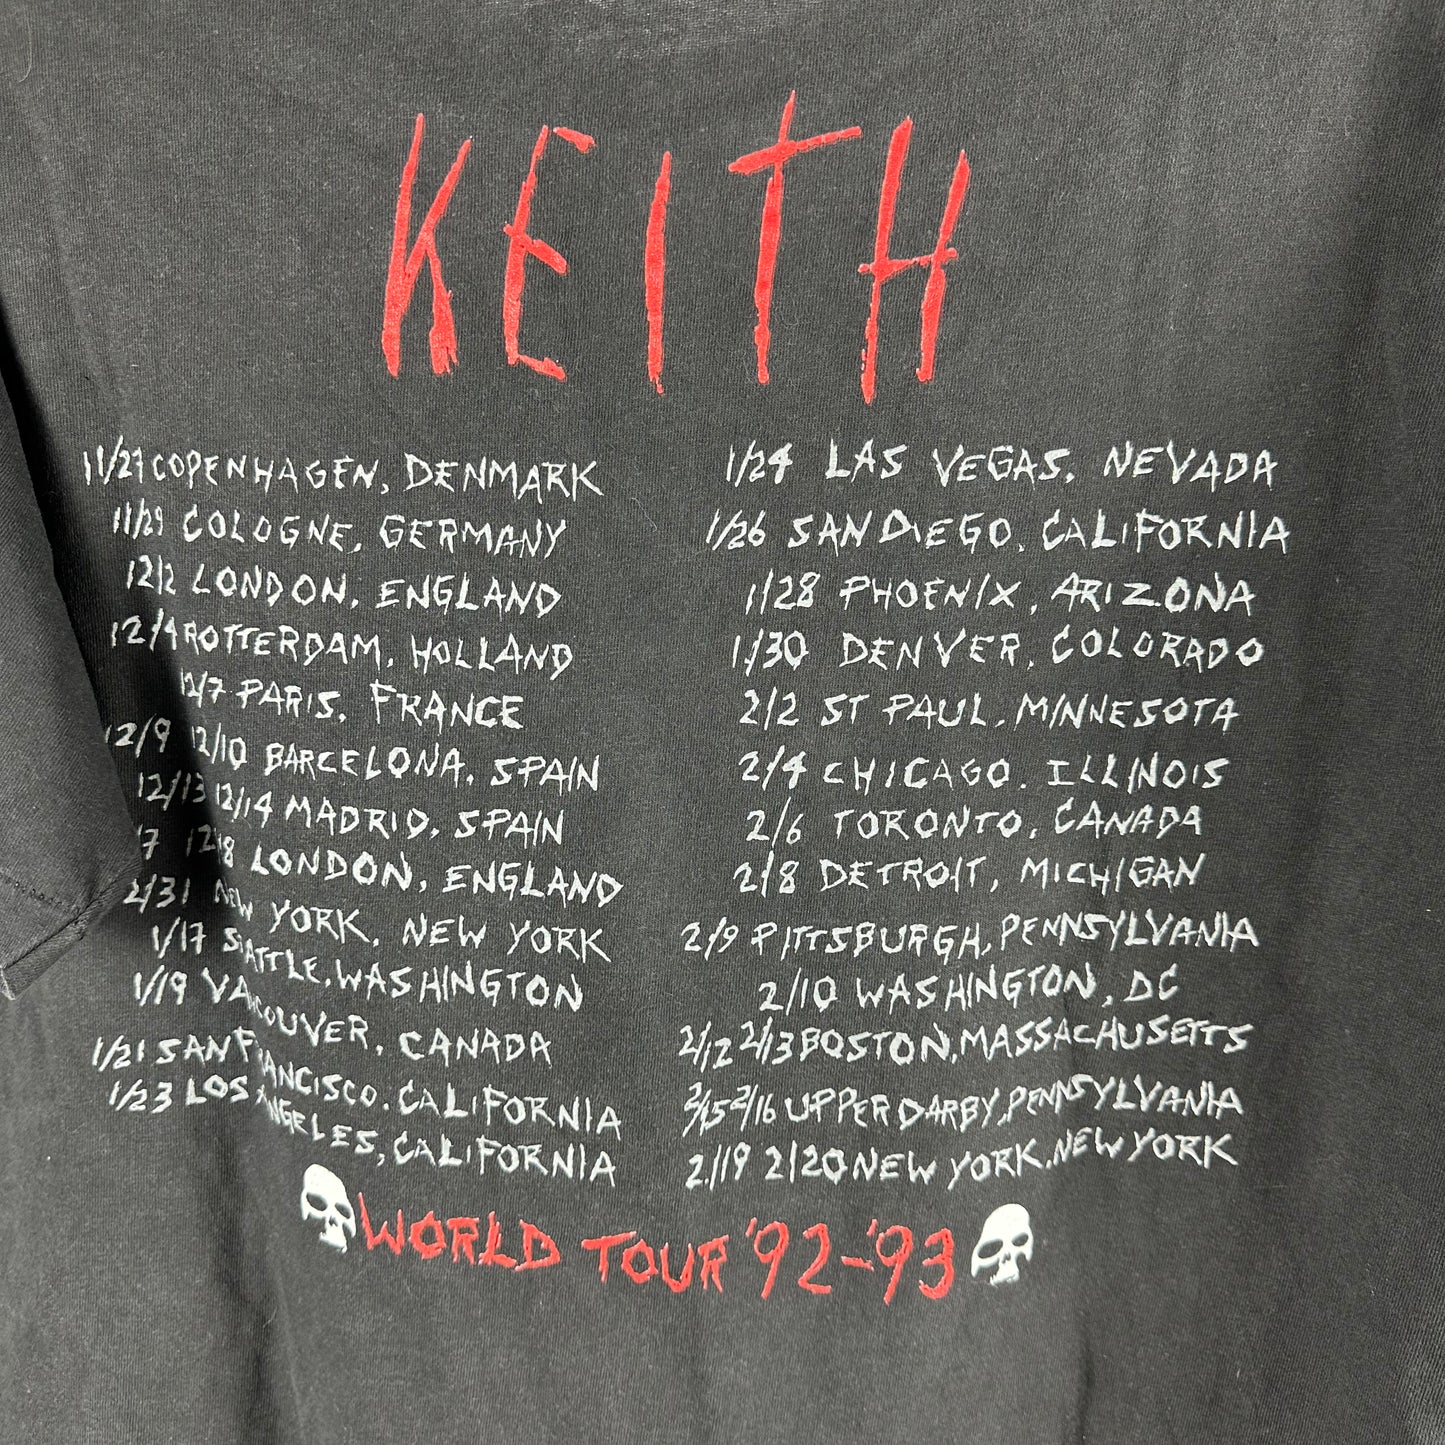 KEITH
11/27 COPENHAGEN, DENMARK
11/29 COLOGNE, GERMANY
12/2 LONDON, ENGLAND
12/4 ROTTERDAM, HOLLAND
12/7 PARIS, FRANCE
12/9 12/10 BARCELONA, SPAIN
12/13 12/14 MADRID, SPAIN
/7 12/18 LONDON, ENGLAND
2/31 NEW YORK, NEW YORK
1/17 SEATTLE, WASHINGTON
1/19 VANCOUVER, CANADA
1/21 SAN FRANCISCO, CALIFORNIA
1/23 LOS ANGELES, CALIFORNIA
1/24 LAS VEGAS, NEVADA
1/26 SAN DIEGO, CALIFORNIA
1/28 PHOENIX, ARIZONA
1/30 DENVER, COLORADO
2/2 ST PAUL, MINNESOTA
2/4 CHICAGO, ILLINOIS
2/6 TORONTO, CANADA
2/8 DETROIT, MICHIGAN
2/9 PITTSBURGH, PENNSYLVANIA
2/10 WASHINGTON, DC
2/12 2/13 BOSTON, MASSACHUSETTS
2/15 2/16 UPPER DARBY, PENNSYLVANIA
2/19 2/20 NEW YORK, NEW YORK
WORLD TOUR '92-'93